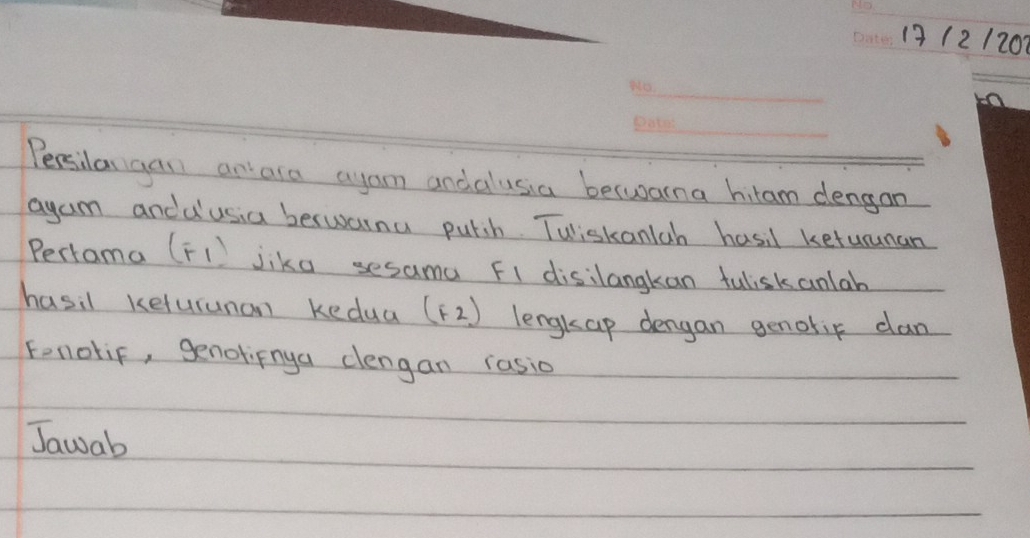 No.
Date: 17 / 2 / 202
No.
Date:
Persilangan antara ayam andalusia berwarna hitam dengan
ayam andalusia berwarna putih. Tuliskanlah hasil keturunan
Pertama (F1) Jika sesama F1 disilangkan tuliskanlah
hasil keturunan kedua (F2) lengkap dengan genotif dan
Fenotif, genotifnya dengan rasio
Jawab